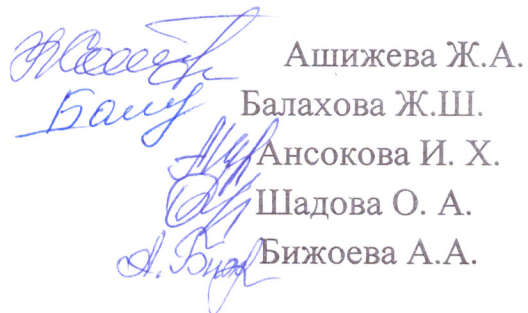 Ашижева Ж.А.
Балахова Ж.Ш.
Ансокова И. Х.
Шадова О. А.
А. Биж Бижоева А.А.